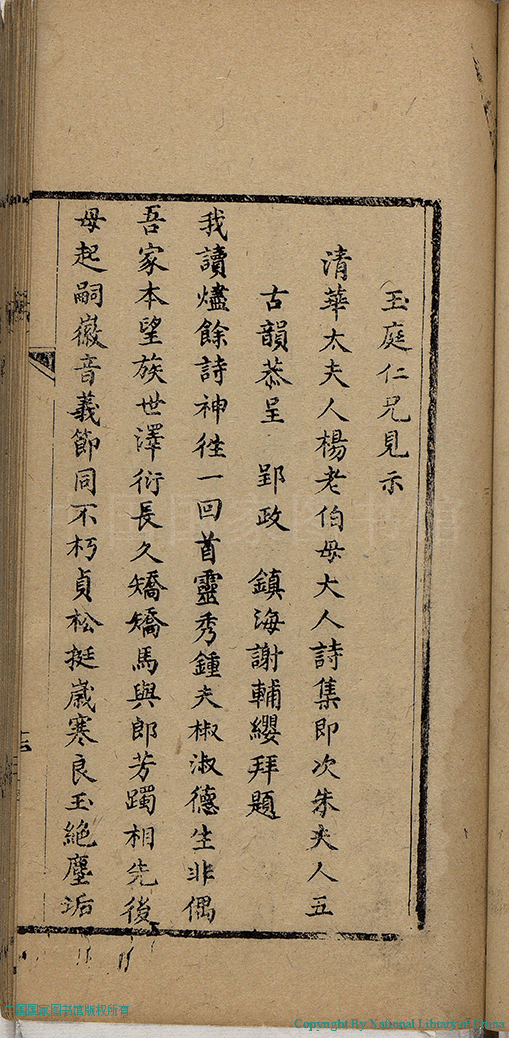 玉庭仁兄見示
清華太夫人楊老伯母大人詩集即次朱夫人五
古韻恭呈　郢政　鎮海謝輔纓拜題
我讀燼餘詩神往一回首靈秀鍾夫椒淑德生非偶
吾家本望族世澤衍長久矯矯馬與郎芳躅相先後
母起嗣徽音義節同不朽貞松挺歲寒良玉絶塵垢
中国国家图书馆版权所有
Copyright By National Library of China